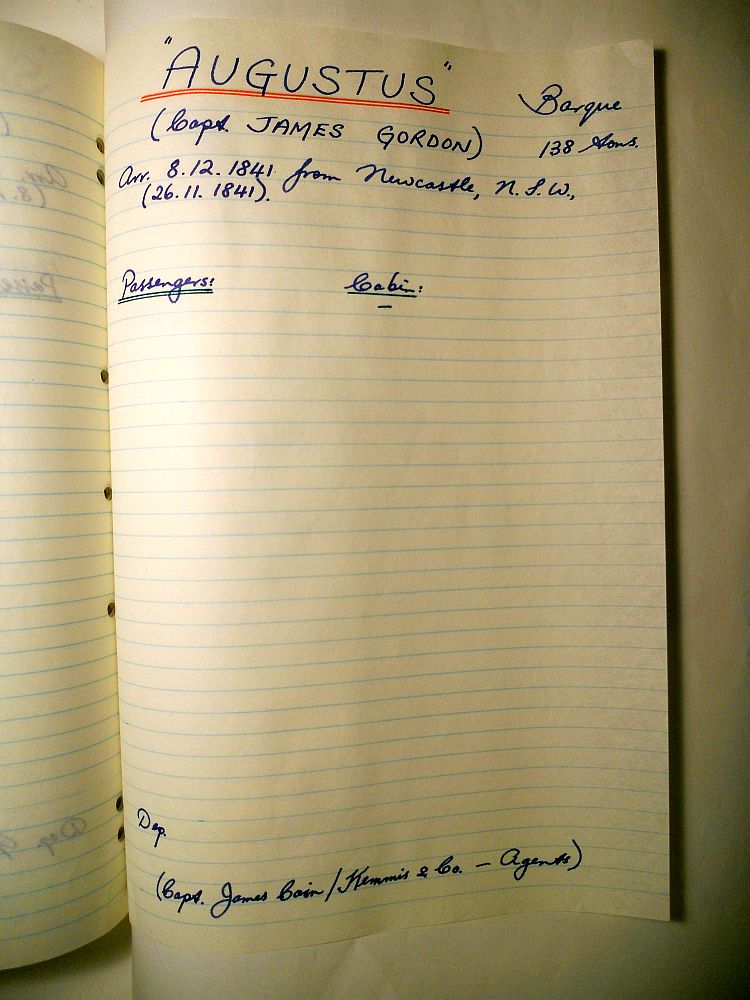 "AUGUSTUS"
Barque
(Capt. JAMES GORDON)
138 tons.
Arr. 8.12.1841 from Newcastle, N.S.W.,
(26.11.1841).
Passengers:
Cabin:
—
Dep.
(Capt. James Cain/Kemmis & Co. — Agents)